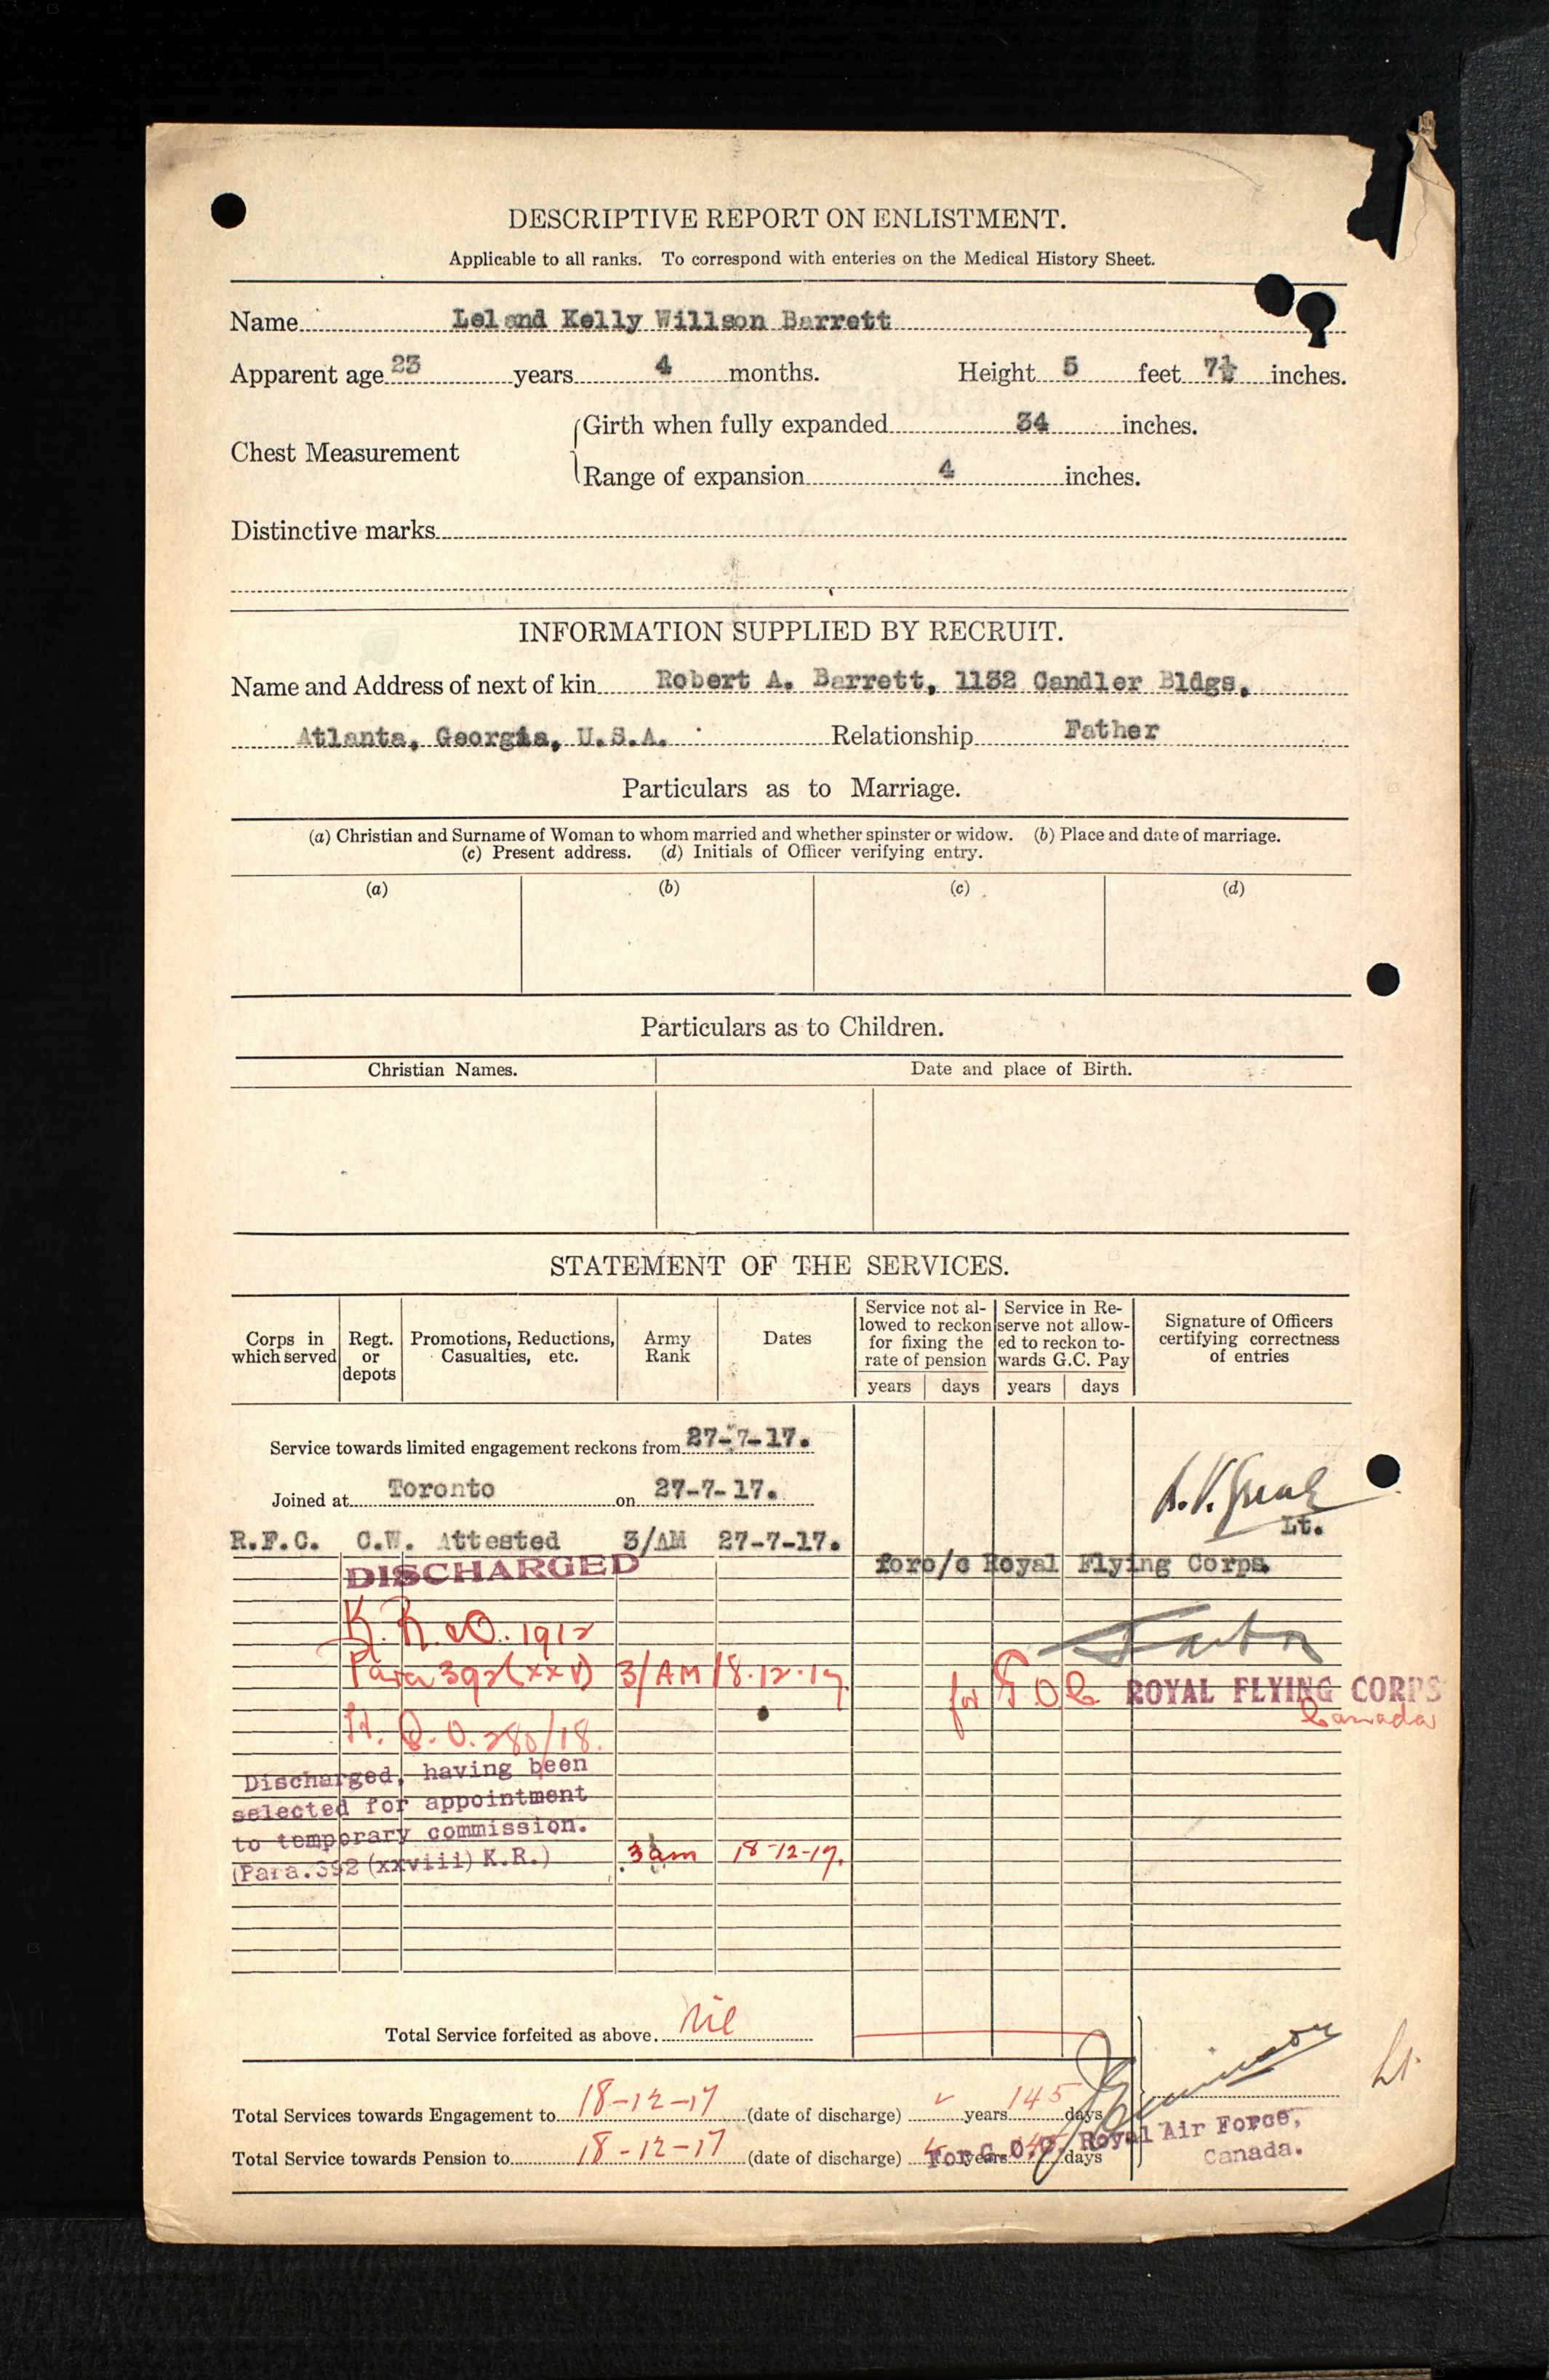 DESCRIPTIVE REPORT ON ENLISTMENT.
Applicable to all ranks. To correspond with enteries on the Medical History Sheet.
Name Leland Kelly Willson Barrett
Apparent age 23 years 4 months. Height 5 feet 7½ inches.
Chest Measurement
Girth when fully expanded 34 inches.
Range of expansion 4 inches.
Distinctive marks
INFORMATION SUPPLIED BY RECRUIT.
Name and Address of next of kin Robert A. Barrett, 1132 Candler Bldgs,
Atlanta, Georgia, U.S.A. Relationship Father
Particulars as to Marriage.
(a) Christian and Surname of Woman to whom married and whether spinster or widow. (b) Place and date of marriage.
(c) Present address. (d) Initials of Officer verifying entry.
(a) (b) (c) (d)
Particulars as to Children.
Christian Names. Date and place of Birth.
STATEMENT OF THE SERVICES.
Corps in which served
Regt. or depots
Promotions, Reductions, Casualties, etc.
Army Rank
Dates
Service not allowed to reckon for fixing the rate of pension
years days
Service in Reserve not allowed to reckon towards G.C. Pay
years days
Signature of Officers certifying correctness of entries
Service towards limited engagement reckons from 27-7-17.
Joined at Toronto on 27-7-17.
Lt.
R.F.C. C.W. Attested 3/AM 27-7-17.
for o/c Royal Flying Corps.
DISCHARGED
K. R. & O. 1912
Para 392 (xxv) 3/AM 18.12.17.
for G.O.C. ROYAL FLYING CORPS
Canada
280/18.
Discharged, having been
selected for appointment
to temporary commission.
(Para. 392 (xxviii) K.R.) 3am 18-12-17.
Total Service forfeited as above. Nil
Total Services towards Engagement to 18-12-17 (date of discharge) years 145 days
Total Service towards Pension to 18-12-17 (date of discharge) years days
Lt.
For G.O.C. Royal Air Force,
Canada.